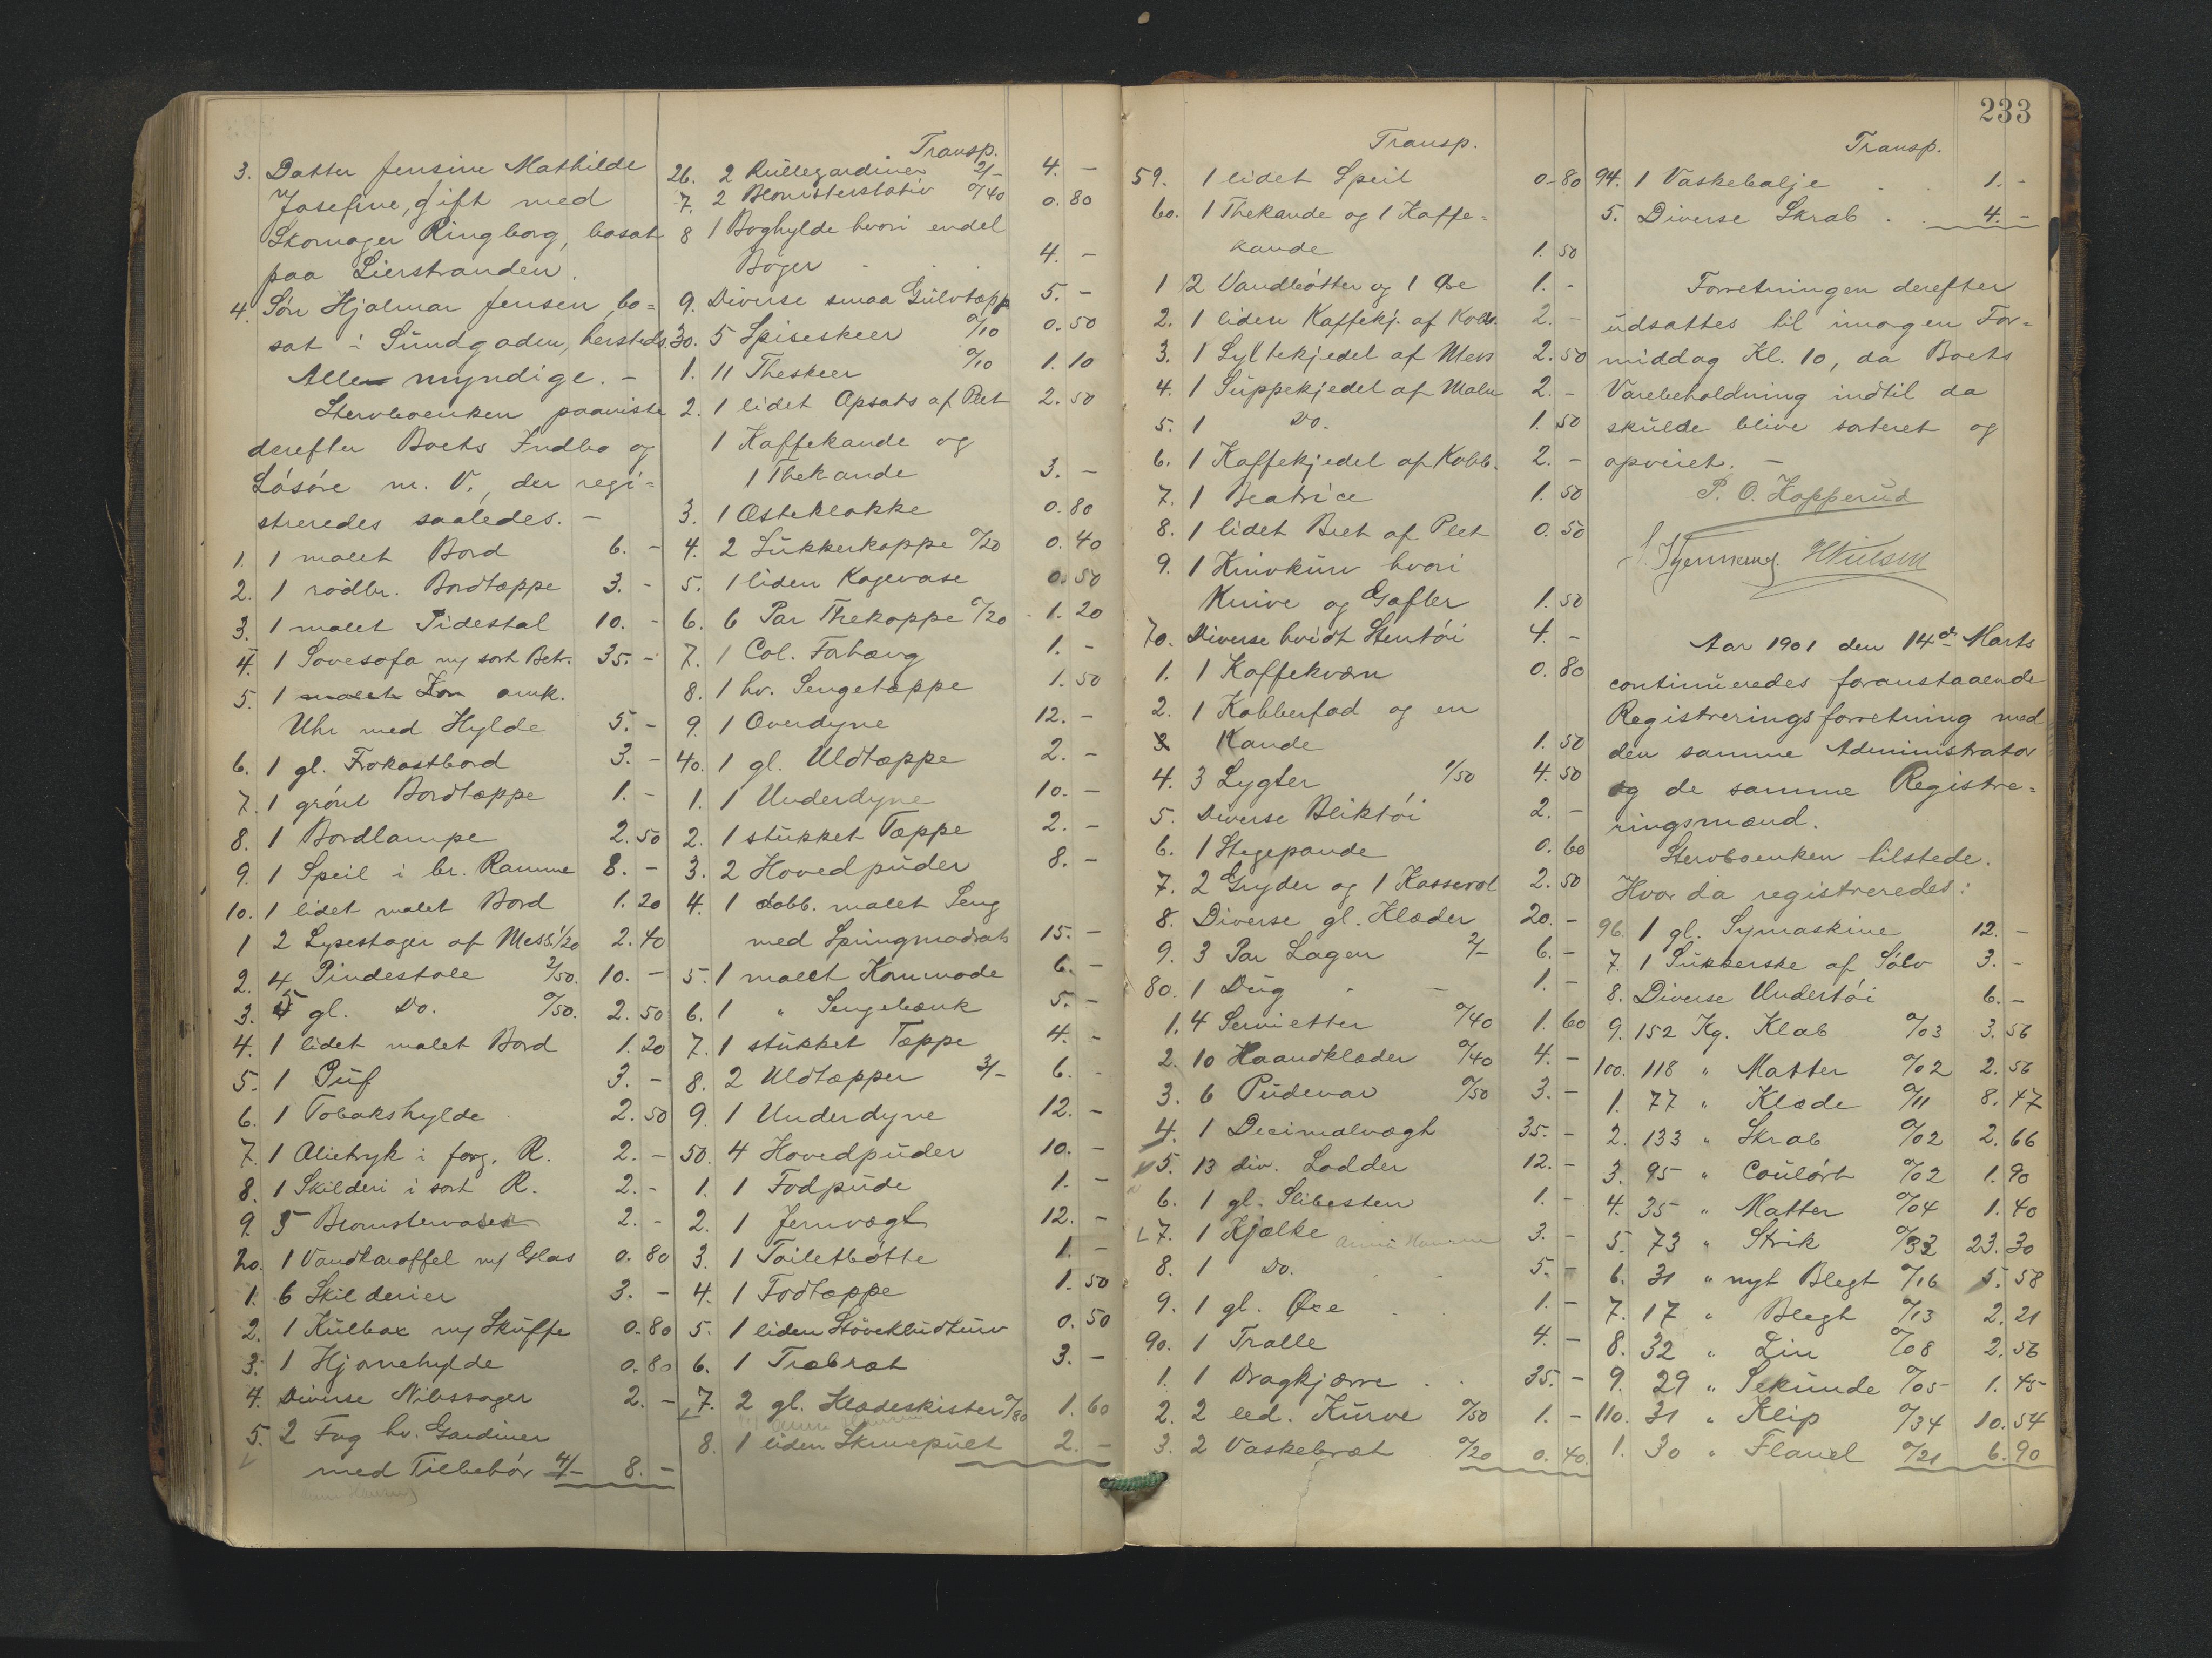 3. Datter Jensine Mathilde
Josefine, gift med
Skomager Ringborg, bosat
paa Lierstranden.
4. Søn Hjalmar Jensen, bo=
sat i Sündgaden, hersteds.
Alle myndige. –
Stervboenken paaviste
derefter Boets Indbo og
Løsøre m. V., der regi=
streredes saaledes. –
1. 1 malet Bord 6. –
2. 1 rødbr. Bordtæppe 3. –
3. 1 malet Pidestal 10. –
4. 1 Sovesofa m/ sort Betr. 35. –
5. 1 amk.
Uhr med Hylde 5. –
6. 1 gl. Frokostbord 3. –
7. 1 grønt Bordtæppe 1. –
8. 1 Bordlampe 2. 50
9. 1 Speil i br. Ramme 8. –
10. 1 lidet malet Bord 1. 20
1 2 Lysestager af Mess. 1/20 2. 40
2. 4 Pindestole 2/50. 10. –
3. 5 gl. Do. 0/50. 2. 50
4. 1 lidet malet Bord 1. 20
5. 1 Puf 3. –
6. 1 Tobakshylde 2. 50
7. 1 Olietryk i forg. R. 2. –
8. 1 Skilderi i sort R. 2. –
9. 5 Blomstervaser 2. –
20. 1 Vandkaroffel m/ Glas 0. 80
1. 6 Skilderier 3. –
2. 1 Külbox m/ Sküffe 0. 80
3. 1 Hjørnehylde 0. 80
4. Diverse Nibssager 2. –
5. 2 Fag hv. Gardiner
med Tilbehør 4/– 8. –
Transp.
26. 2 Rüllegardiner 2/– 4. –
7. 2 Blomsterstativ 0/40 0. 80
8 1 Boghylde hvori endel
Bøger 4. –
9. Diverse smaa Gülvtæpp 5. –
30. 5 Spiseskeer 0/10 0. 50
1. 11 Theskeer 0/10 1. 10
2. 1 lidet Opsats af Plet 2. 50
1 Kaffekande og
1 Thekande 3. –
3. 1 Osteklokke 0. 80
4. 2 Sukkerkoppe 0/20 0. 40
5. 1 liden Kagevase 0. 50
6. 6 Par Thekoppe 0/20 1. 20
7. 1 Col. Forhæng 1. –
8. 1 hv. Sengetæppe 1. 50
9. 1 Overdyne 12. –
40. 1 gl. Uldtæppe 2. –
1. 1 Underdyne 10. –
2. 1 stükket Tæppe 2. –
3. 2 Hovedpüder 8. –
4. 1 dobb. malet Seng
med Springmadrats 15. –
5. 1 malet Kommode 6. –
6. 1 " Sengebænk 5. –
7. 1 stükket Tæppe 4. –
8. 2 Uldtæpper 3/– 6. –
9. 1 Underdyne 12. –
50. 4 Hovedpüder 10. –
1. 1 Fodpüde 1. –
2. 1 Jernvægt 12. –
3. 1 Toiletbøtte 1. –
4. 1 Fodtæppe 1. 50
5. 1 liden Støvekludkürv 0. 50
6. 1 Træbræt 3. –
7. 2 gl. Klædeskister 0/80 1. 60
8. 1 liden Skrivepült 2. –
233
Transp.
59. 1 lidet Speil 0. 80
60. 1 Thekande og 1 Kaffe=
kande 1. 50
1 2 Vandbøtter og 1 Øse 1. –
2. 1 liden Kaffekj. af Kobb. 2. –
3. 1 Syltekjedel af Mess 2. 50
4. 1 Süppekjedel af Malm 2. –
5. 1 Do. 1. 50
6. 1 Kaffekjedel af Kobb. 2. –
7. 1 Beatrice 1. 50
8. 1 lidet Bret af Plet 0. 50
9. 1 Knivkürv hvori
Knive og Gafler 1. 50
70. Diverse hvidt Stentøi 4. –
1. 1 Kaffekværn 0. 80
2. 1 Kobberfad og en
3 Kande 1. 50
4. 3 Lygter 1/50 4. 50
5. Diverse Bliktøi 2. –
6. 1 Stegepande 0. 60
7. 2 Gryder og 1 Kasserol 2. 50
8. Diverse gl. Klæder 20. –
9. 3 Par Lagen 2/– 6. –
80. 1 Düg 1. –
1. 4 Servietter 0/40 1. 60
2. 10 Haandklæder 0/40 4. –
3. 6 Püdevar 0/50 3. –
4. 1 Decimalvægt 35. –
5. 13 div. Lodder 12. –
6. 1 gl. Slibesten 1. –
7. 1 Kjælke 3. –
8. 1 Do. 5. –
9. 1 gl. Øxe 1. –
90. 1 Tralle 4. –
1. 1 Dragkjærre 35. –
2. 2 led. Kürve 0/50 1. –
3. 2 Vaskebræt 0/20 0. 40.
Transp.
94. 1 Vaskebalje 1. –
5. Diverse Skrab 4. –
Forretningen derefter
udsattes til imorgen For=
middag Kl. 10, da Boets
Varebeholdning indtil da
skülde blive sorteret og
opveiet. –
P. O. Kopperud
HNielsen
Aar 1901 den 14de Marts
continueredes foranstaaende
Registreringsforretning med
den samme Administrator
og de samme Registre=
ringsmænd.
Stervboenken tilstede.
Hvor da registreredes:
96. 1 gl. Symaskine 12. –
7. 1 Sukkerske af Sølv 3. –
8. Diverse Undertøi 6. –
9. 152 Kg. Klab 0/03 3. 56
100. 118 " Matter 0/02 2. 56
1. 77 " Klæde 0/11 8. 47
2. 133 " Skrab 0/02 2. 66
3. 95 " Coulørt 0/02 1. 90
4. 35 " Matter 0/04 1. 40
5. 73 " Strik 0/32 23. 30
6. 31 " nyt Blegt 0/16 5. 58
7. 17 " Blegt 0/13 2. 21
8. 32 " Lin 0/08 2. 56
9. 29 " Sekunde 0/05 1. 45
110. 31 " Klip 0/34 10. 54
1. 30 " Flanel 0/21 6. 90